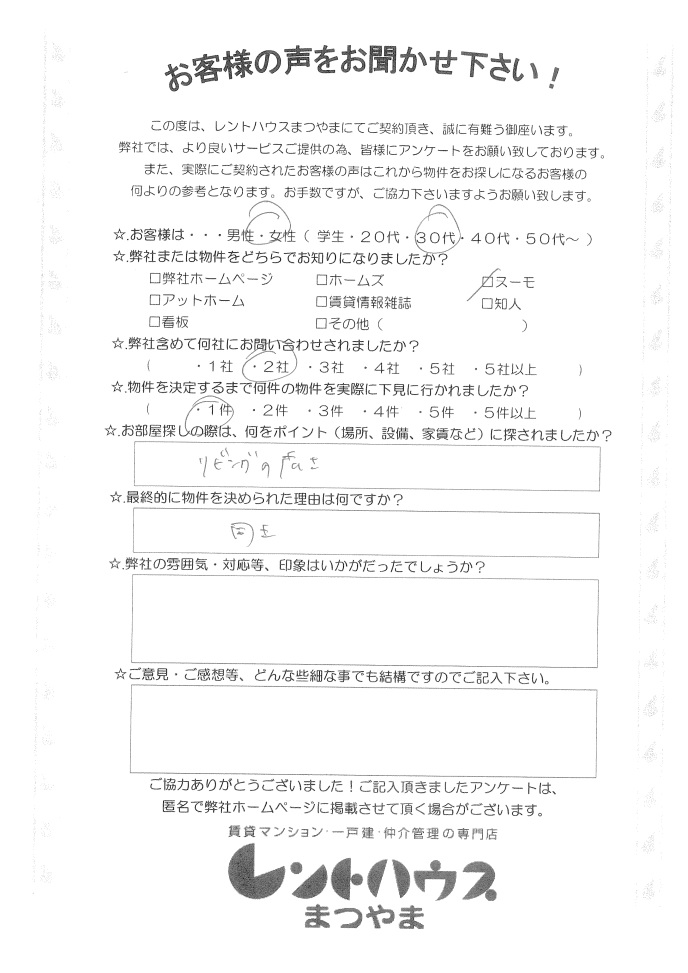 お客様の声をお聞かせ下さい!
この度は、レントハウスまつやまにてご契約頂き、誠に有難う御座います。
弊社では、より良いサービスご提供の為、皆様にアンケートをお願い致しております。
また、実際にご契約されたお客様の声はこれから物件をお探しになるお客様の
何よりの参考となります。お手数ですが、ご協力下さいますようお願い致します。
☆.お客様は・・・男性・女性（ 学生・20代・30代・40代・50代～ ）
☆.弊社または物件をどちらでお知りになりましたか？
□弊社ホームページ □ホームズ □スーモ
□アットホーム □賃貸情報雑誌 □知人
□看板 □その他（ ）
☆.弊社含めて何社にお問い合わせされましたか？
（ ・1社 ・2社 ・3社 ・4社 ・5社 ・5社以上 ）
☆.物件を決定するまで何件の物件を実際に下見に行かれましたか？
（ ・1件 ・2件 ・3件 ・4件 ・5件 ・5件以上 ）
☆.お部屋探しの際は、何をポイント（場所、設備、家賃など）に探されましたか？
リビングの広さ
☆.最終的に物件を決められた理由は何ですか？
同上
☆.弊社の雰囲気・対応等、印象はいかがだったでしょうか？
☆ご意見・ご感想等、どんな些細な事でも結構ですのでご記入下さい。
ご協力ありがとうございました！ご記入頂きましたアンケートは、
匿名で弊社ホームページに掲載させて頂く場合がございます。
賃貸マンション・一戸建・仲介管理の専門店
レントハウス
まつやま